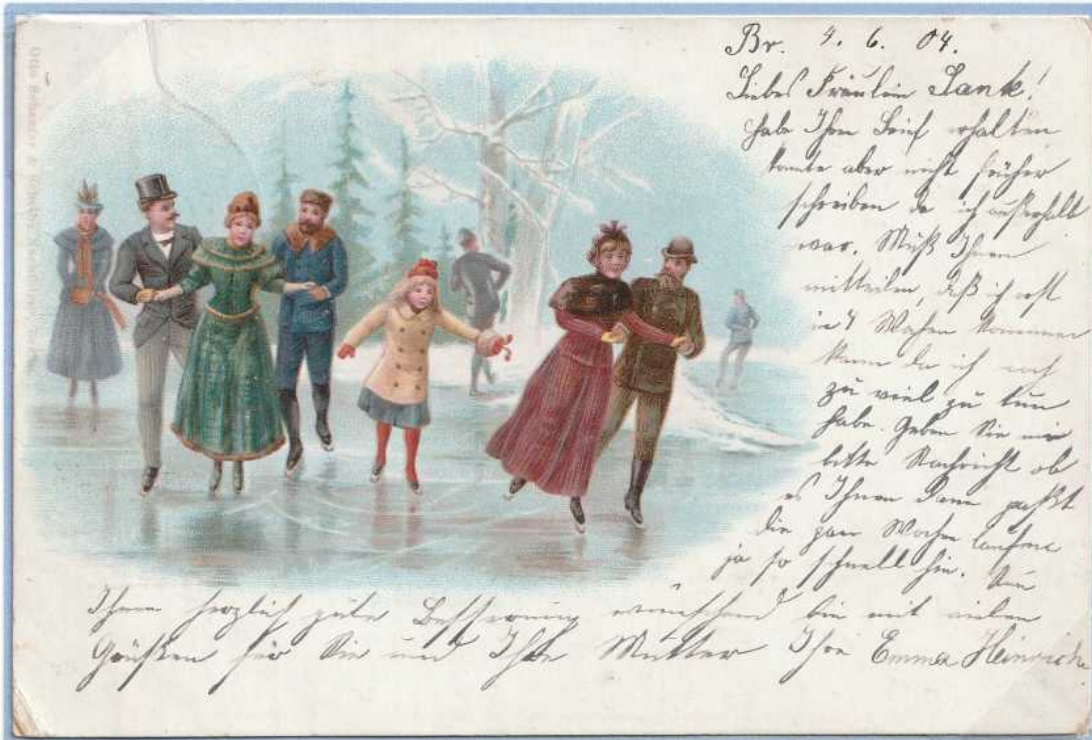 Br. 4. 6. 04.
Liebes Fräulein Zank!
habe Ihren Brief erhalten
konnte aber nicht früher
schreiben da ich außerhalb
war. Muß Ihnen
mitteilen, daß ich erst
in 4 Wochen kommen
kann da ich noch
zu viel zu tun
habe. Geben Sie mir
bitte Nachricht ob
es Ihnen dann paßt
die paar Wochen laufen
ja so schnell hin. Nun
Ihnen herzlich gute Besserung wünschend bin mit vielen
Grüßen für Sie und Ihre Mutter Ihre Emma Heinrichs
Otto